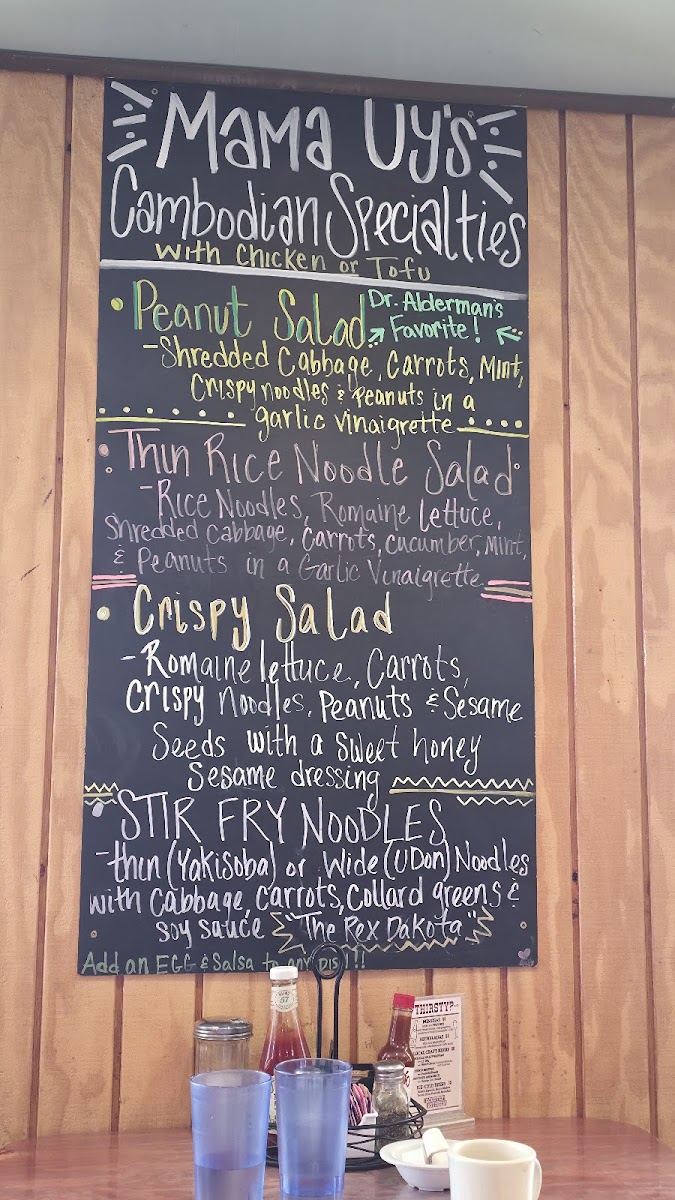 Mama Uy's
Cambodian Specialties
with Chicken or Tofu
Peanut Salad
Dr. Alderman's
Favorite!
-Shredded Cabbage, Carrots, Mint,
Crispy noodles & Peanuts in a
garlic vinaigrette
Thin Rice Noodle Salad
-Rice Noodles, Romaine lettuce,
Shredded Cabbage, Carrots, cucumber, mint,
& Peanuts in a Garlic Vinaigrette
Crispy Salad
-Romaine lettuce, Carrots,
Crispy noodles, Peanuts & Sesame
Seeds with a sweet honey
Sesame dressing
STIR FRY NOODLES
-thin (Yakisoba) or Wide (UDon) Noodles
with Cabbage, carrots, collard greens &
soy sauce "The Rex Dakota"
Add an EGG & Salsa to any DISH!!
THIRSTY?
57